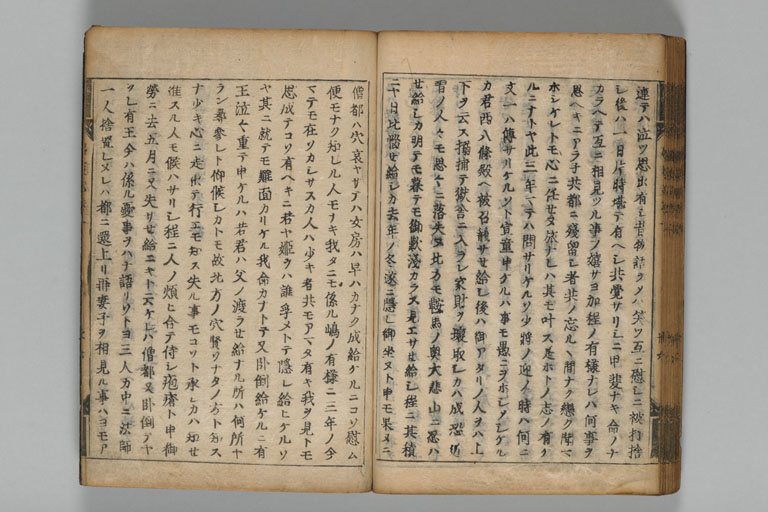 連テハ泣ツ思出有シ昔物語ノメハ笑ツ互ニ慰シニ被打捨
シ後ハ一日片時堪テ有ヘシ共覚サリシニ甲斐ナキ命ノナ
カラヘテ互ニ相見ツル事ノ嬉サヨ加程ノ有様ナレハ何事ヲ
思ヘキニアラ子共都ニ残留シ者共ノ忘ルヽ間ナク戀ク聞マ
ホシケレトモ心ニ任セヌ旅ナレハ其モ叶ス是ホトノ志ノ有ケ
ルニナトヤ此三年マテハ問サリケルソ少將ノ迎ノ時ハ何ニ
文一ハ傳サリケルソト宣童申ケルハ事モ愚ニヲホシメシケル
カ君西八條殿ヘ被召籠サセ給シ後ハ御アタリノ人ヲハ上
下ヲ云ス搦捕テ獄舎ニ入ラレ家財ヲ壊取シカハ成恐所
省ノ人々モ思々ニ落失ヌ北方モ鞍馬ノ奥大悲山ニ忍ハ
セ給シカ明テモ暮テモ御歎浅カラス見エサセ給シ程ニ其積
ニヤ日比惱セ給シカ去年ノ冬遂ニ隠レ御坐ヌト申モ果ヌニ
僧都ハ穴哀ヤサテハ女房ハ早ハカナク成給ケルニコソ慰ム
便モナク知レル人モナキ我タニモ係ル嶋ノ有様ニ三年ノ今
マテモ在ソカシサスカ人ハ少キ者共モアマタ有ヤ我ヲ見トモ
思成テコソ有ヘキニ君ヤ姫ヲハ誰孚メトテ隠レ給ヒケルソ
ヤ其ニ就テモ難面カリケル我命カナトテ又臥倒給ケルニ有
王泣々重テ申ケルハ若君ハ父ノ渡ラセ給ナル所ハ何所ヤ
ラン尋參レト仰候シカトモ故北方ノ穴賢ソナタノ方ト知ス
ナ少キ心ニ走出テ行エモ知ス失ル事モコソト承シカハ知セ
進スル人モ候ハサリシ程ニ人ノ煩ヒ合テ侍シ疱瘡ト申御
勞ニ去五月ニ又失サセ給ニキト云ケレハ僧都又臥倒テヤ
ヽレ有王今ハ係ル憂事ヲハナ語リソトヨ三人カ中ニ法師
一人捨置レヌレハ都ニ還上リ再妻子ヲ相見ル事ハヨモア